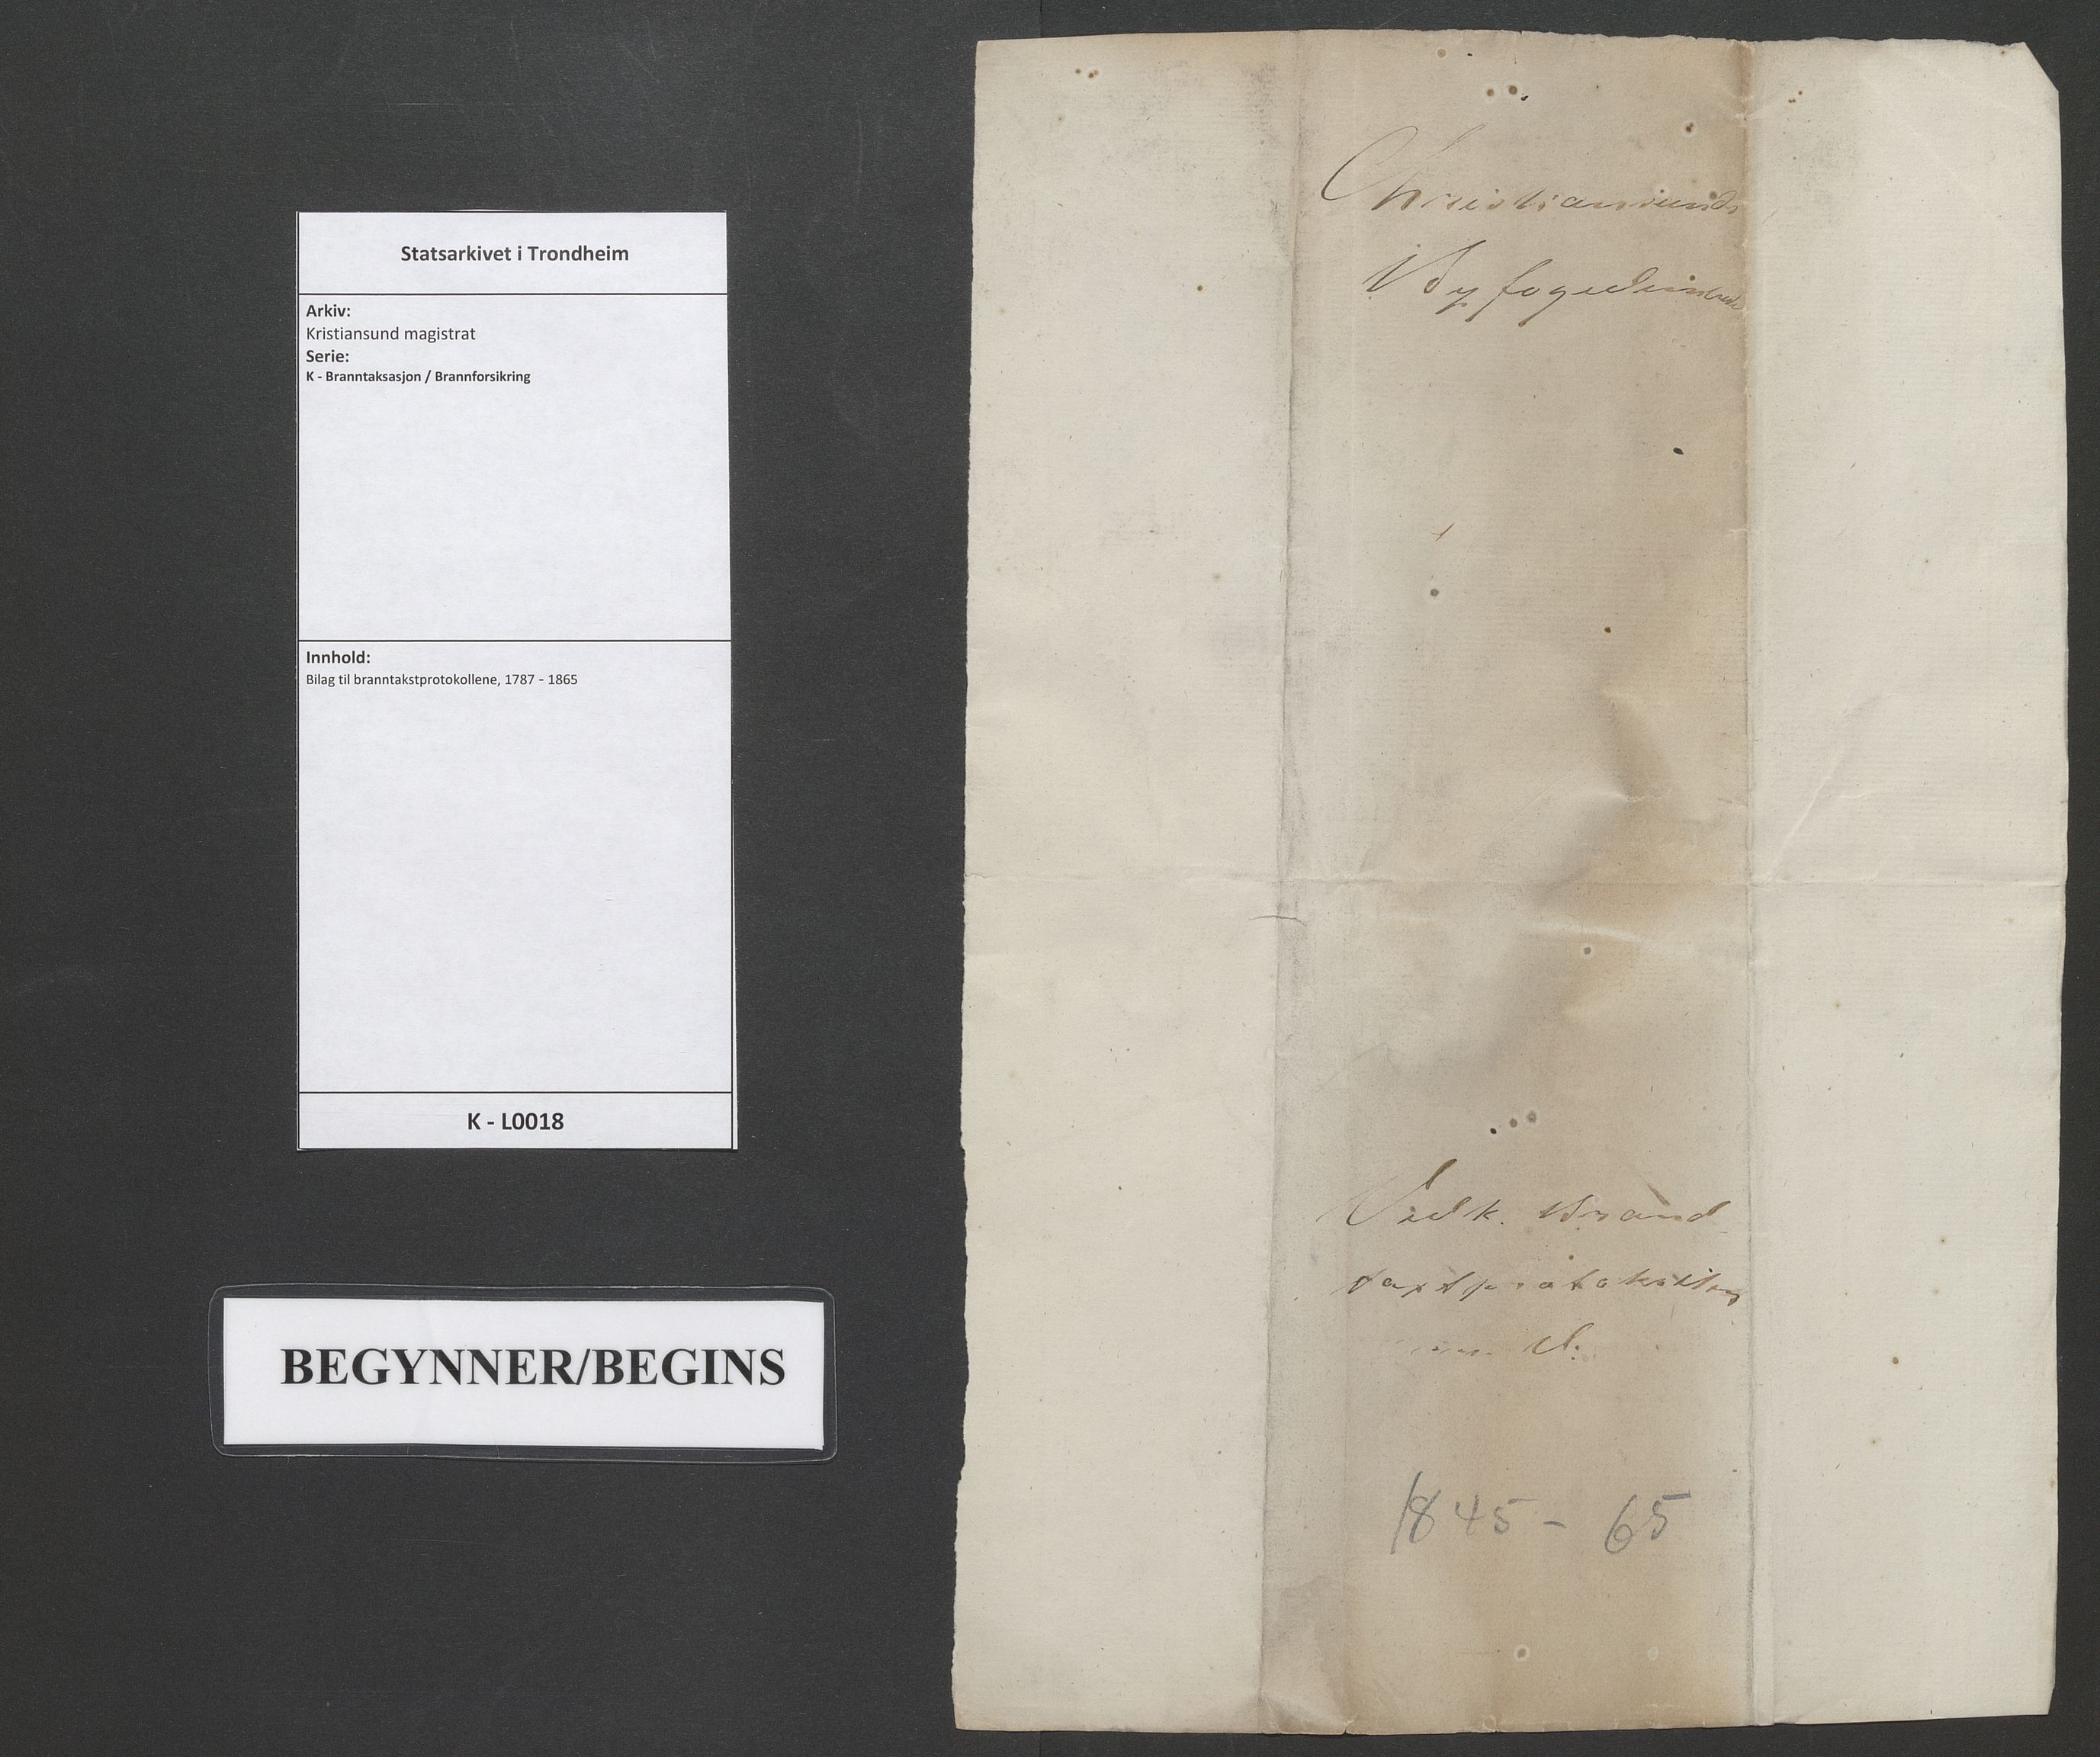 Statsarkivet i Trondheim
Arkiv:
Kristiansund magistrat
Serie:
K - Branntaksasjon / Brannforsikring
Innhold:
Bilag til branntakstprotokollene, 1787 - 1865
K - L0018
BEGYNNER/BEGINS
Christiansunds
Byfogedembede
Vedk. Brand-
taxtprotokollen
1845 - 65